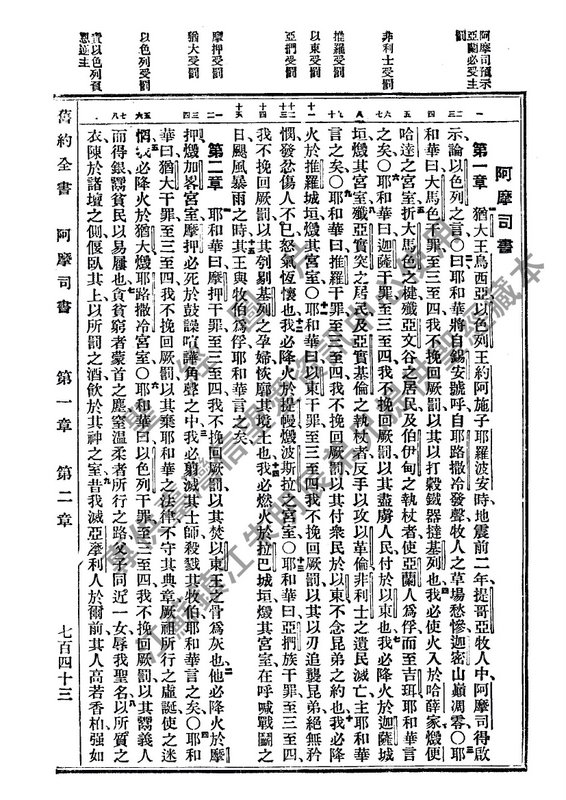 阿摩司預示
亞蘭必受主
罰
非利士受罰
推羅受罰
以東受罰
亞捫受罰
摩押受罰
猶大受罰
以色列受罰
責以色列負
恩逆主
阿摩司書
第一章 猶大王烏西亞以色列王約阿施子耶羅波安時地震前二年提哥亞牧人中阿摩司得啟
示論以色列之言○曰耶和華將自錫安號呼自耶路撒冷發聲牧人之草場愁慘迦密山巔凋零○耶
和華曰大馬色干罪至三至四我不挽回厥罰以其以打穀鐵器撻基列也我必使火入於哈薛家燬便
哈達之宮室折大馬色之楗殲亞文谷之居民及伯伊甸之執杖者使亞蘭人爲俘而至吉珥耶和華言
之矣○耶和華曰迦薩干罪至三至四我不挽回厥罰以其盡虜人民付於以東也我必降火於迦薩城
垣燬其宮室殲亞實突之居民及亞實基倫之執杖者反手以攻以革倫非利士之遺民滅亡主耶和華
言之矣○耶和華曰推羅干罪至三至四我不挽回厥罰以其付衆民於以東不念昆弟之約也我必降
火於推羅城垣燬其宮室○耶和華曰以東干罪至三至四我不挽回厥罰以其以刃追襲昆弟絕無矜
憫發忿傷人不已怒氣恆懷也我必降火於提幔燬波斯拉之宮室○耶和華曰亞捫族干罪至三至四
我不挽回厥罰以其刳剔基列之孕婦恢廓其境土也我必燃火於拉巴城垣燬其宮室在呼喊戰鬬之
日颶風暴雨之時其王與牧伯爲俘耶和華言之矣
第二章 耶和華曰摩押干罪至三至四我不挽回厥罰以其焚以東王之骨爲灰也必降火於摩
押燬加畧宮室摩押必死於鼓譟喧譁角聲之中我必翦滅其士師殺戮其牧伯耶和華言之矣○耶和
華曰猶大干罪至三至四我不挽回厥罰以其棄耶和華之法律不守其典章厥祖所行之虛誕使之迷
惘我必降火於猶大燬耶路撒冷宮室○耶和華曰以色列干罪至三至四我不挽回厥罰以其鬻義人
而得銀鬻貧民以易屨也貪貧窮者蒙首之塵窒溫柔者所行之路父子同近一女辱我聖名以所質之
衣陳於諸壇之側偃臥其上以所罰之酒飲於其神之室昔我滅亞摩利人於爾前其人高若香柏强如
舊約全書 阿摩司書 第一章 第二章 七百四十三